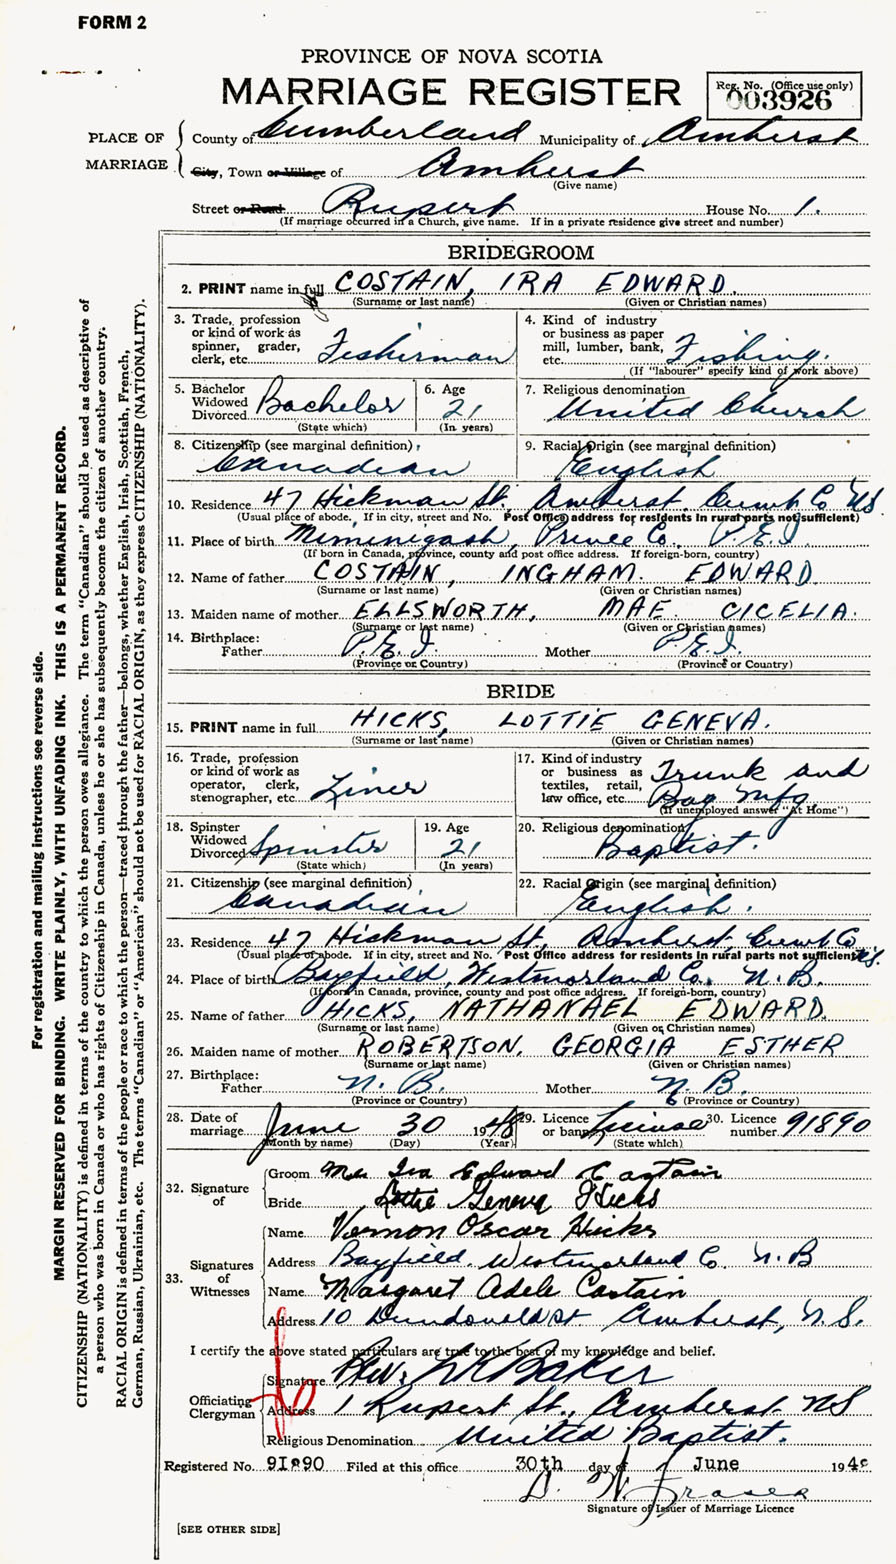 FORM 2
PROVINCE OF NOVA SCOTIA
MARRIAGE REGISTER
Reg. No. (Office use only)
003926
PLACE OF MARRIAGE
County of Cumberland Municipality of Amherst
City, Town or Village of Amherst
(Give name)
Street or Road Rupert House No. 1.
(If marriage occurred in a Church, give name. If in a private residence give street and number)
BRIDEGROOM
2. PRINT name in full COSTAIN, IRA EDWARD.
(Surname or last name) (Given or Christian names)
3. Trade, profession or kind of work as spinner, grader, clerk, etc. Fisherman
4. Kind of industry or business as paper mill, lumber, bank, etc. Fishing.
(If "labourer" specify kind of work above)
5. Bachelor Widowed Divorced Bachelor
(State which)
6. Age 21
(In years)
7. Religious denomination United Church
8. Citizenship (see marginal definition) Canadian
9. Racial Origin (see marginal definition) English
10. Residence 47 Hickman St. Amherst, Cumb Co NS
(Usual place of abode. If in city, street and No. Post Office address for residents in rural parts not sufficient)
11. Place of birth Miminegash Prince Co., P.E.I
(If born in Canada, province, county and post office address. If foreign-born, country)
12. Name of father COSTAIN, INGHAM. EDWARD.
(Surname or last name) (Given or Christian names)
13. Maiden name of mother ELLSWORTH, MAE CICELIA.
(Surname or last name) (Given or Christian names)
14. Birthplace:
Father P.E.I. Mother P.E.I.
(Province or Country) (Province or Country)
BRIDE
15. PRINT name in full HICKS, LOTTIE GENEVA.
(Surname or last name) (Given or Christian names)
16. Trade, profession or kind of work as operator, clerk, stenographer, etc. Liner
17. Kind of industry or business as textiles, retail, law office, etc. Trunk and Bag Mfg.
(If unemployed answer "At Home")
18. Spinster Widowed Divorced Spinster
(State which)
19. Age 21
(In years)
20. Religious denomination Baptist.
21. Citizenship (see marginal definition) Canadian
22. Racial Origin (see marginal definition) English.
23. Residence 47 Hickman St, Amherst, Cumb Co N.S.
(Usual place of abode. If in city, street and No. Post Office address for residents in rural parts not sufficient)
24. Place of birth Bayfield, Westmorland Co., N. B.
(If born in Canada, province, county and post office address. If foreign-born, country)
25. Name of father HICKS, NATHANAEL EDWARD.
(Surname or last name) (Given or Christian names)
26. Maiden name of mother ROBERTSON. GEORGIA ESTHER
(Surname or last name) (Given or Christian names)
27. Birthplace:
Father N. B. Mother N. B.
(Province or Country) (Province or Country)
28. Date of marriage June 30 1948
(Month by name) (Day) (Year)
29. Licence or bans License
(State which)
30. Licence number 91890
32. Signature of
Groom Mr Ira Edward Costain
Bride Lottie Geneva Hicks
33. Signatures of Witnesses
Name Vernon Oscar Hicks
Address Bayfield. Westmorland Co. N. B
Name Margaret Adele Costain
Address 10 Dundonald St Amherst, N.S.
I certify the above stated particulars are true to the best of my knowledge and belief.
Officiating Clergyman
Signature Rev. Baker
Address 1 Rupert St., Amherst NS
Religious Denomination United Baptist.
Registered No. 91890 Filed at this office 30th day of June 194
Fraser
Signature of Issuer of Marriage Licence
[SEE OTHER SIDE]
For registration and mailing instructions see reverse side.
MARGIN RESERVED FOR BINDING. WRITE PLAINLY, WITH UNFADING INK. THIS IS A PERMANENT RECORD.
CITIZENSHIP (NATIONALITY) is defined in terms of the country to which the person owes allegiance. The term "Canadian" should be used as descriptive of
a person who was born in Canada or who has rights of Citizenship in Canada, unless he or she has subsequently become the citizen of another country.
RACIAL ORIGIN is defined in terms of the people or race to which the person—traced through the father—belongs, whether English, Irish, Scottish, French,
German, Russian, Ukrainian, etc. The terms "Canadian" or "American" should not be used for RACIAL ORIGIN, as they express CITIZENSHIP (NATIONALITY).